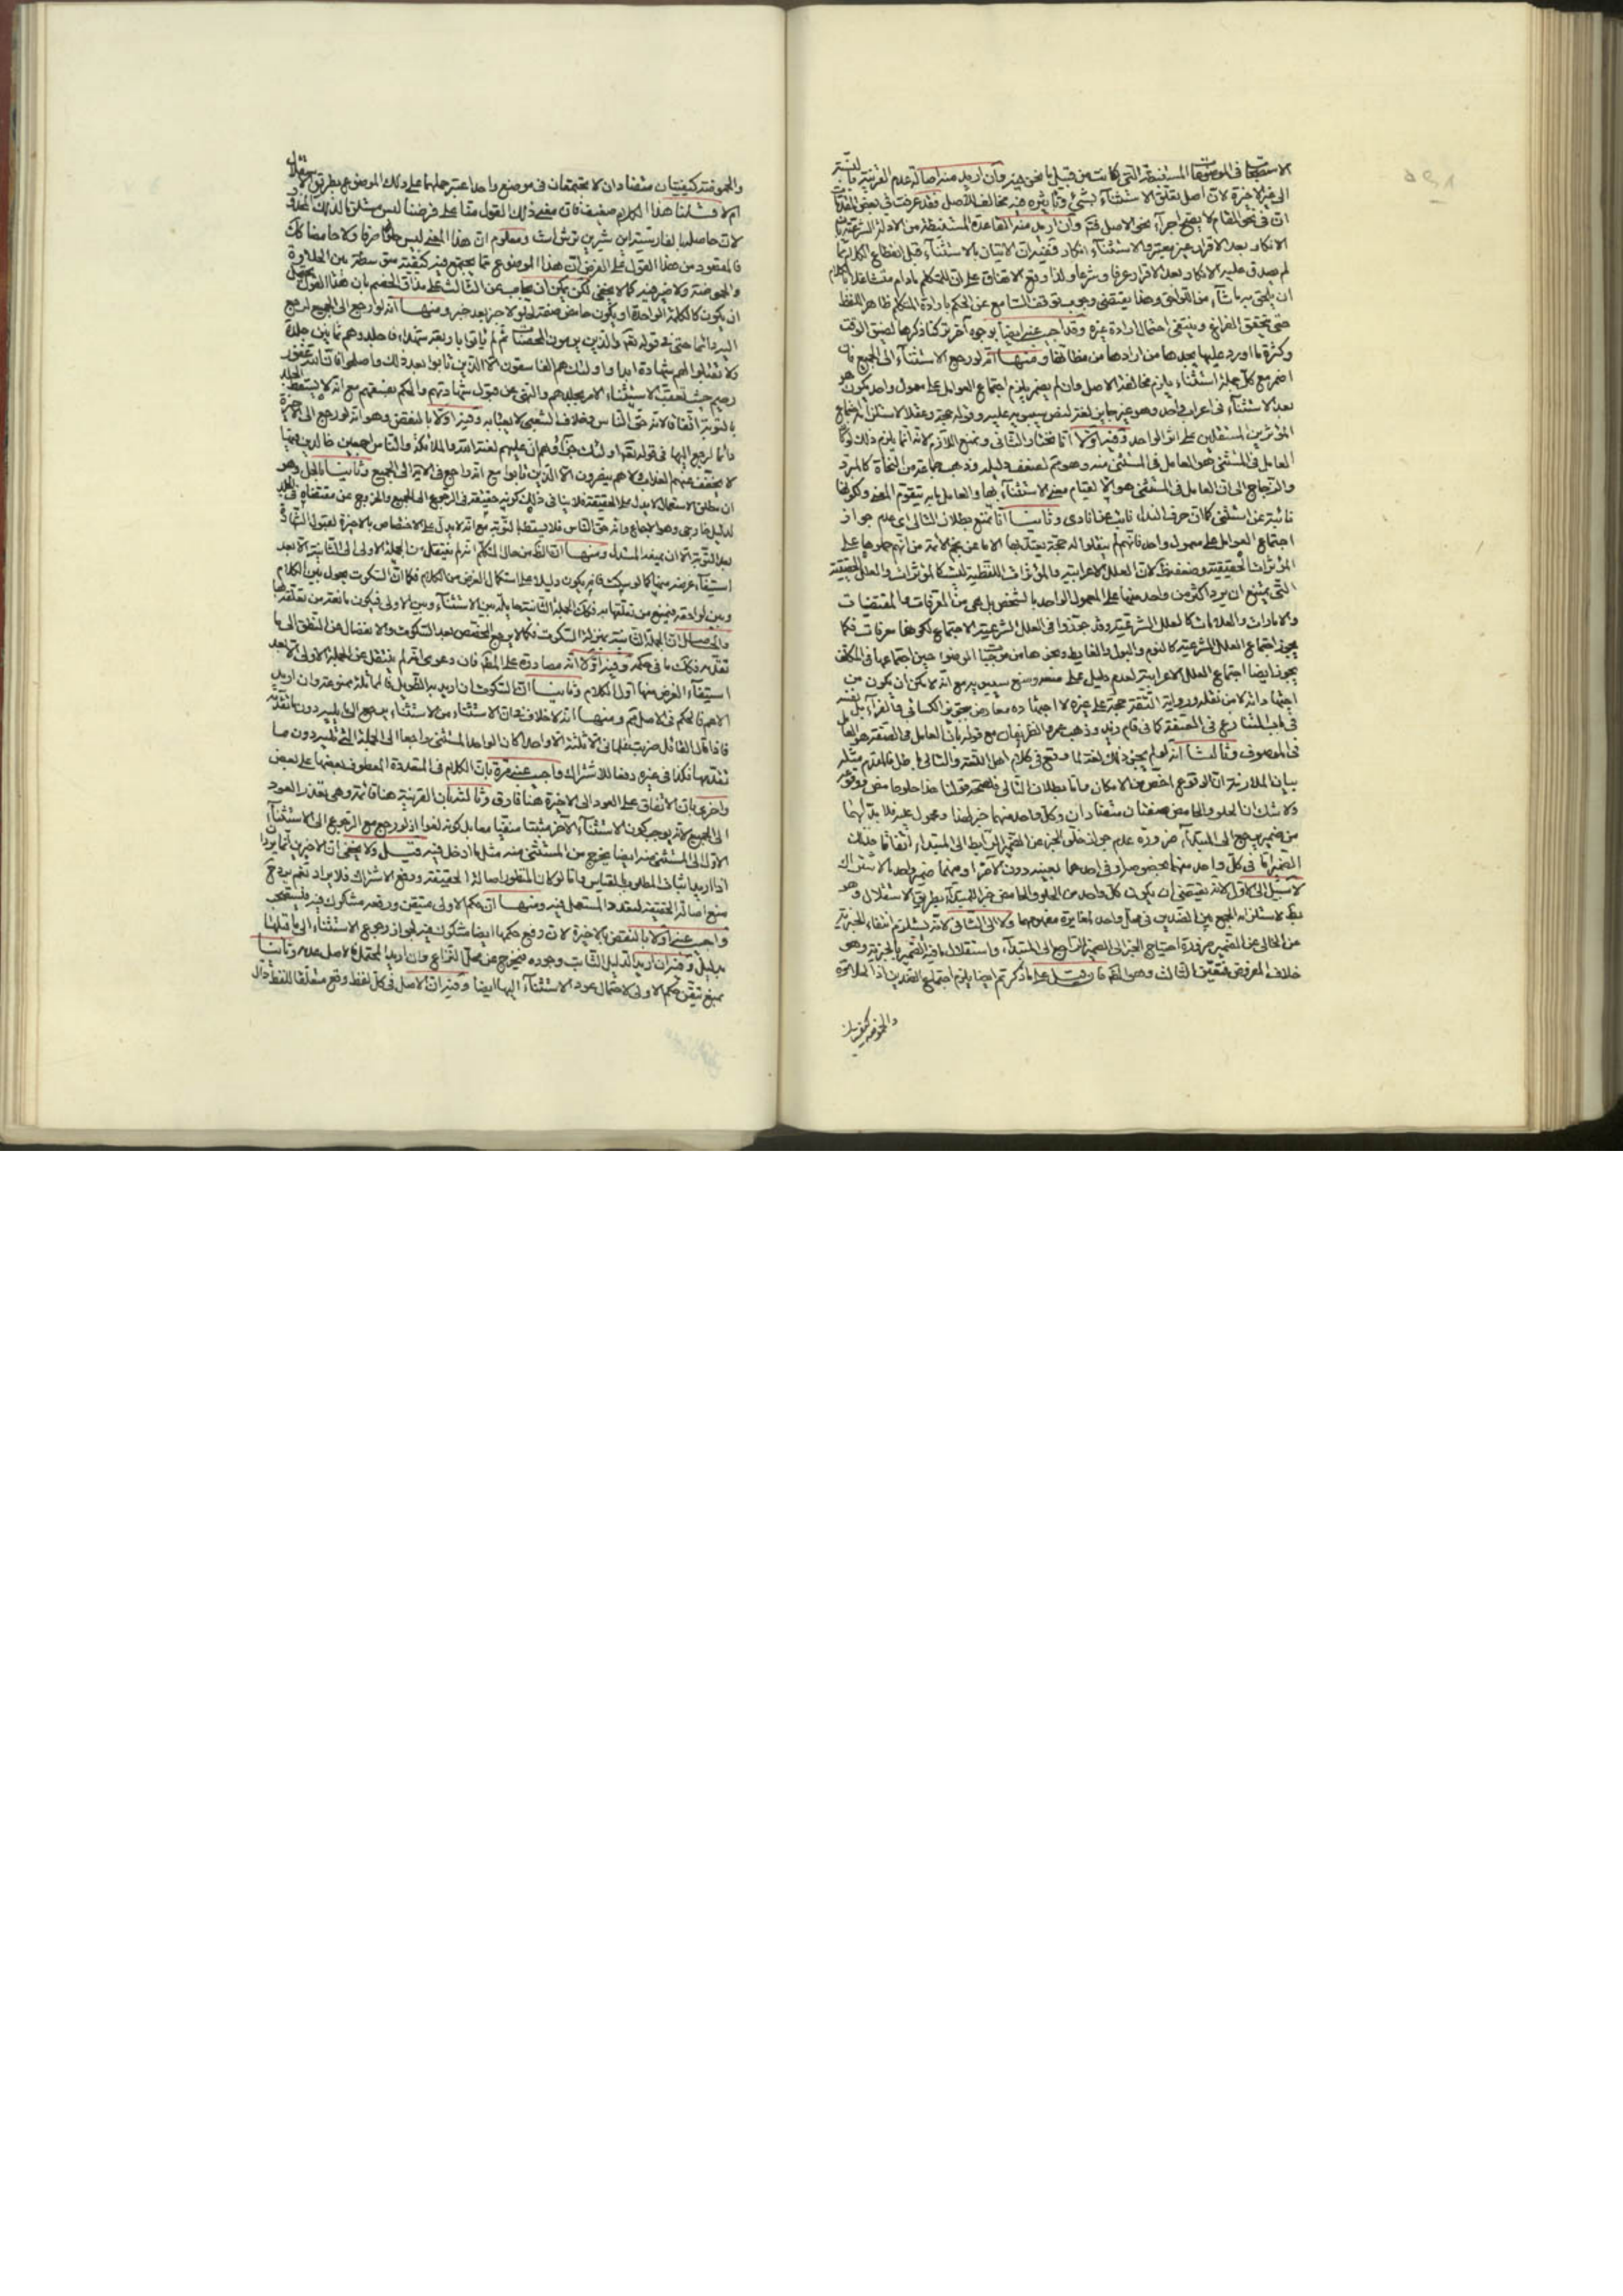 الاستصحاب في الموضوعات المستنبطة التي كانت من قبيل ما نحن فيه وان اريد منه اصالة عدم القرينة
الى غير الاخيرة لان اصل تعلق الاستثناء بشيء وتاثيره فيه مخالف للاصل فقد عرفت في بعض المقدمات
ان في نحو المقام لا يصح اجراء نحو الاصل فتم وان اريد منه القاعدة المستنبطة من الادلة الشرعية
الانكار بعد الاقرار غير معتبر والاستثناء انكار ففيه ان الاتيان بالاستثناء قبل انقطاع الكلام مما
لم يصدق عليه الانكار بعد الاقرار عرفا وشرعا ولذا وقع الاتفاق على ان للمتكلم ما دام متشاغلا بالكلام
ان يلحق به ما شاء من اللواحق وهذا يقتضي وجوب توقف السامع عن الحكم بارادة المتكلم ظاهر اللفظ
حتى يتحقق الفراغ وينتفي احتمال ارادة غيره وقد اجيب عنه ايضا بوجوه اخر تركنا ذكرها لضيق الوقت
وكثرة ما اورد عليها يجدها من ارادها من مظانها ومنها انه لو رجع الاستثناء الى الجميع فان
اضمر مع كل جملة استثناء يلزم مخالفة الاصل وان لم يضمر يلزم اجتماع العوامل على معمول واحد يكون هو
بعد الاستثناء في اعراب واحد وهو غير جايز لغة لنص سيبويه عليه وقوله حجة وعقلا لاستلزامه اجتماع
المؤثرين المستقلين على اثر الواحد وفيه اولا انا نختار الثاني ونمنع اللازم لانه انما يلزم ذلك لو كان
العامل في المستثنى هو العامل في المستثنى منه وهو تم لضعف دليله وذهب جماعة من النحاة كالمبرد
والزجاج الى ان العامل في المستثنى هو الا لقيام معنى الاستثناء بها والعامل ما به يتقوم المعنى ولكونها
نائبة عن استثنى كما ان حرف النداء نائب عن انادى وثانيا انا نمنع بطلان التالي اى عدم جواز
اجتماع العوامل على معمول واحد فانهم لم ينقلوا له حجة يعتد بها الا ما عن نجم الائمة من انهم حملوها على
المؤثرات الحقيقية وضعفه ظ لان العلل الاعرابية والمؤثرات اللفظية ليست كالمؤثرات والعلل الحقيقية
التى يمتنع ان يرد اكثر من واحد منها على المعمول الواحد بالشخص بل هى من المعرفات والمقتضيات
والامارات والعلامات كالعلل الشرعية وقد جوزوا في العلل الشرعية الاجتماع لكونها معرفات فكما
يجوز اجتماع العلل الشرعية كالنوم والبول والغايط ونحوها من موجبات الوضوء حين اجتماعها في المكلف
يجوز ايضا اجتماع العلل الاعرابية لعدم دليل على منعه ومنع سيبويه مع انه لا يمكن ان يكون من
اجتهاده لا من نقله ورواية الثقة حجة على غيره لا اجتهاده معارض بتجويز الكسائي والفراء بل نفسه
في باب التنازع في الحقيقة كما في قام وذهب عمرو الظريفان مع قوله بان العامل في الصفة هو العامل
في الموصوف وثالثا انه لو لم يجز ذلك لغة لما وقع في كلام اهل اللغة والتالي باطل فالمقدم مثله
بيان الملازمة ان الوقوع اخص من الامكان واما بطلان التالي فلصحة قولنا هذا حلو حامض
ولا شك ان الحلو والحامض صفتان متضادان وكل واحد منهما خبر لهذا ومحمول عليه فلا بد لهما
من ضمير يرجع الى المبتدأ ضرورة عدم جواز خلو الخبر عن الضمير الرابط الى المبتدا اتفاقا فذلك
الضمير اما في كل واحد منهما بخصوصه او في احدهما بعينه دون الاخر او فيهما ضمير واحد بالاشتراك
لا سبيل الى الاول لانه يقتضي ان يكون كل واحد من الحلو والحامض خبر المبتدأ بطريق الاستقلال وهو
بط لاستلزامه الجمع بين الضدين في محل واحد لمغايرة مفهومهما ولا الى الثاني لانه يستلزم انتفاء الخبرية
عن الخالي عن الضمير ضرورة احتياج الخبر الى الضمير الراجع الى المبتدأ واستقلال ما فيه الضمير بالخبرية وهو
خلاف المفروض فتعين الثالث وهو المط فان قيل على ما ذكرتم ايضا يلزم اجتماع الضدين اذ الحلاوة
والحموضة كيفيتان
والحموضة كيفيتان متضادان لا تجتمعان في موضع واحد اعتبر حملهما على ذلك الموضوع بطريق
ام لا قلنا هذا الكلام ضعيف فان معنى ذلك القول مقا على فرضنا ليس مستلزما لذلك المحذور
لان حاصلها بالفارسية اين شيرين ترش است ومعلوم ان هذا المعنى ليس حلوا صرفا ولا حامضا كك
فالمقصود من هذا القول على الفرض ان هذا الموضوع مما يجتمع فيه كيفية متوسطة بين الحلاوة
والحموضة ولا ضير فيه كما لا يخفى لكن يمكن ان يجاب عن الثالث على مذاق الخصم بان هذا القول
ان يكون كالكلمة الواحدة او يكون حامض صفة لحلو لا خبر بعد خبر ومنها انه لو رجع الى الجميع لرجع
اليه دائما حتى في قوله تعالى والذين يرمون المحصنات ثم لم ياتوا باربعة شهداء فاجلدوهم ثمانين جلدة
ولا تقبلوا لهم شهادة ابدا واولئك هم الفاسقون الا الذين تابوا من بعد ذلك واصلحوا فان الله غفور
رحيم حيث تعقب الاستثناء الامر بجلدهم والنهى عن قبول شهادتهم والحكم بفسقهم مع انه لا يسقط الجلد
بالتوبة اتفاقا لانه حق الناس وخلاف الشعبي لا يعبأ به وفيه اولا بالنقض وهو انه لو رجع الى الاخيرة
دائما لرجع اليها في قوله تعالى اولئك جزاؤهم ان عليهم لعنة الله والملائكة والناس اجمعين خالدين فيها
لا يخفف عنهم العذاب ولا هم ينصرون الا الذين تابوا مع انه راجع في الاية الى الجميع وثانيا بالحل وهو
ان مطلق الاستعمال لا يدل على الحقيقة فلا ينافي ذلك كونه حقيقة في الرجوع الى الجميع والخروج عن مقتضاه في الجلد
لدليل خارجي وهو الاجماع وانه حق الناس فلا يسقط بالتوبة مع انه لا يدل على الاختصاص بالاخيرة لقبول الشهادة
بعد التوبة الا ان يفيد المستدل ومنها ان الظ من حال المتكلم انه لم ينتقل من الجملة الاولى الى الثانية الا بعد
استيفاء غرضه منها كما لو سكت فانه يكون دليلا على استكمال الغرض من الكلام فكما ان السكوت يحول بين الكلام
وبين لواحقه فيمنع من تعلقها به فكك الجملة الثانية حايلة بين الاستثناء وبين الاولى فيكون مانعة من تعلقه بها
والحاصل ان الجملة الثانية بمنزلة السكوت فكما لا يرجع المخصص بعد السكوت والانفصال عن النطق الى ما
تقدمه فكك ما في حكمه وفيه اولا انه مصادرة على المط فان دعوى انه لم ينتقل عن الجملة الاولى الا بعد
استيفاء الغرض منها اول الكلام وثانيا ان السكوت ان اريد به الطويل فالمماثلة ممنوعة وان اريد
الاعم فالحكم في الاصل تم ومنها انه لا خلاف في ان الاستثناء من الاستثناء يرجع الى ما يليه دون ما تقدمه
فاذا قال القائل ضربت غلماني الا ثلثة الا واحدا كان الواحد المستثنى راجعا الى الجملة التي تليه دون ما
تقدمها فكذا في غيره دفعا للاشتراك واجيب عنه مرة بان الكلام في المتعددة المعطوف بعضها على بعض
واخرى بان الاتفاق على العود الى الاخيرة هنا فارق وثالثة بان القرينة هنا قائمة وهى تعذر العود
الى الجميع لانه يوجب كون الاستثناء الاخر مثبتا منفيا معا بل كونه لغوا اذ لو رجع مع الرجوع الى الاستثناء
الاول الى المستثنى منه ايضا يخرج من المستثنى منه مثل ما ادخل فيه قيل ولا يخفى ان الاخيرين انما يردان
اذا اريد اثبات المطلوب بالقياس واما لو كان المنظور اصالة الحقيقة ودفع الاشتراك فلا يراد نعم يرد ح
منع اصالة الحقيقة لتعدد المستعمل فيه ومنها ان حكم الاولى متيقن ورفعه مشكوك فيه فيستصحب
واجيب عنه اولا بالنقض بالاخيرة لان رفع حكمها ايضا مشكوك فيه لجواز رجوع الاستثناء الى ما قبلها
بدليل وفيه ان اريد الدليل الثابت وجوده فيخرج عن محل النزاع وان اريد المحتمل فالاصل عدمه وثانيا
بمنع تيقن حكم الاولى لاحتمال عود الاستثناء اليها ايضا وفيه ان الاصل في كل لفظ وقع متعلقا للفظ دال